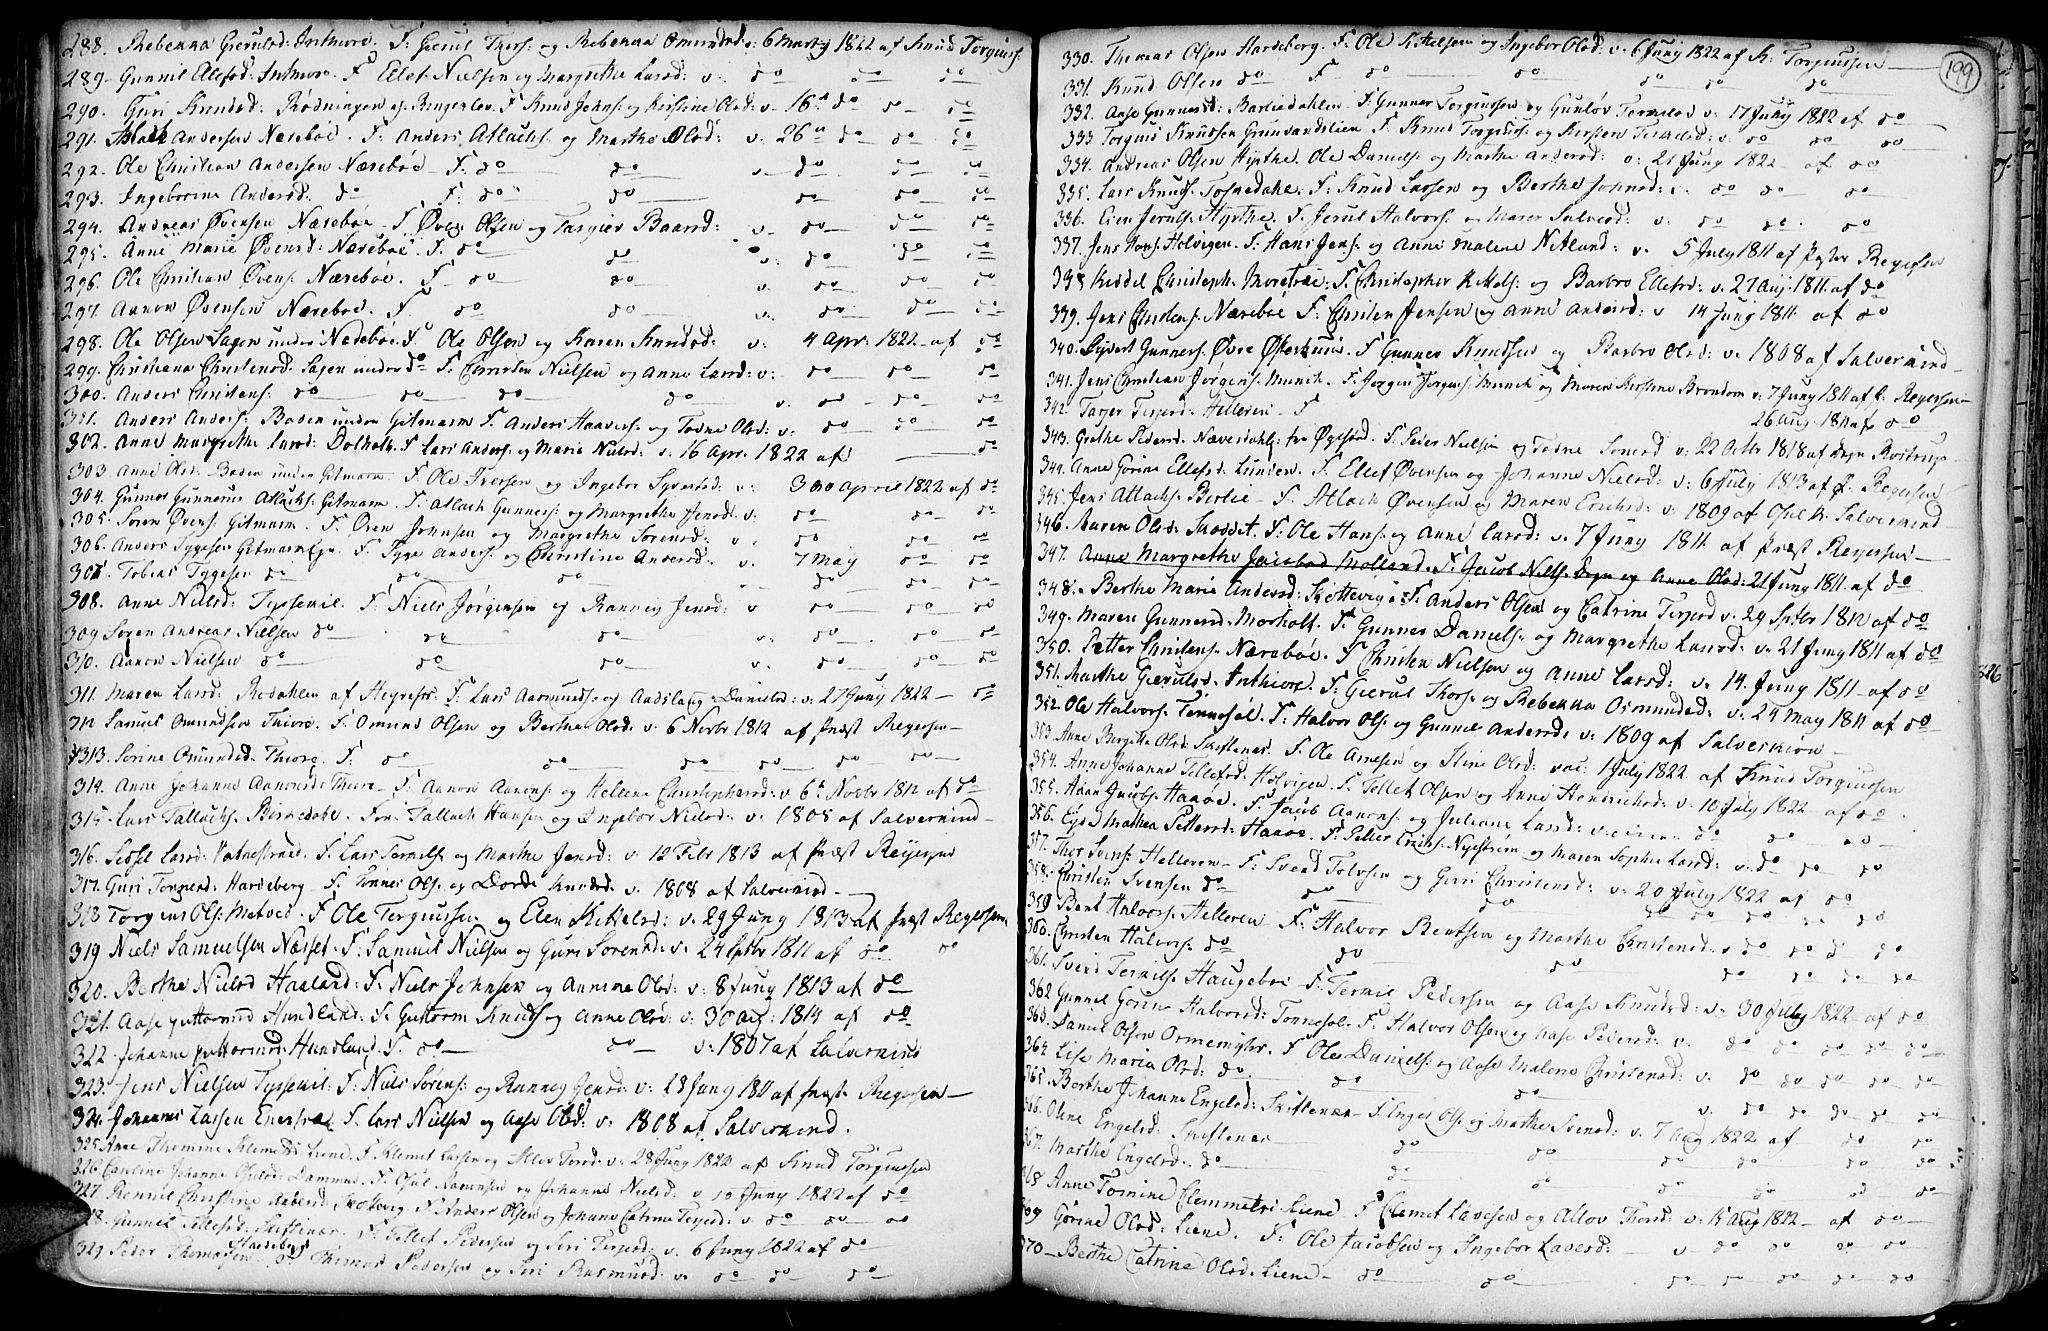 288. Rebekka Gierulsd: Inthiore. F: Gierul Thors: og Rebekka Omundsd v: 6 Marty 1822 af Knud Torgiuss:
289. Gunnil Ellefsd: Inthiore. F Ellef Nielsen og Margrethe Larsd: v: do do do
290. Guri Knudsd: Rødningen F Knud Johns: og Kirstine Olsd: v. 16 do do do
291. Atlack Andersen Næreboe. F: Anders Atlachs: og Marthe Olsd: v: 26 do do do
292. Ole Christian Andersen Næreboe F: do do v. do do do
293. Ingeborine Andersd. do F: do do do do do
294. Andreas Øvensen Næreboe F Øven Olsen og Targier Baarsd: v. do do do
295. Anne Marie Øvensd: Næreboe F. do do v. do do do
296. Ole Christian Øvens: Næreboe. F do do v. do do do
297. Aanon Øvensen Næreboe F. do do v. do do do
298. Ole Olsen Sagen under Næreboe F Ole Olsen og Karen Knudsd: v: 4 Apr: 1822 af do
299. Christiana Christensd. Sagen under do F. Christen Nielsen og Anne Larsd: v: do do do
300. Anders Christens: do do do do v. do do do
301. Anders Anders: Baden under Gitmarm F. Anders Haavers: og Todne Olsd: v: do do do
302. Anne Margrethe Larsd: Dolholt F Lars Anders: og Marie Nielsd: v. 16 Apr. 1822 af do
303. Anne Olsd: Baden under Gitmarm F. Ole Iversen og Ingebor Syversd: v: 30 April 1822 af do
304. Gunner Gunnerius Atlachs: Gitmarm. F. Atlach Gunners: og Margrethe Jensd: v: do do do
305. Søren Øvens: Gitmarm. F. Øven Johnsen og Margrethe Sørensd: v. do do do
306. Anders Tygesen Gitmarm F. Tyge Anders: og Christine Andersd: v. 7 May do do
307 Tobias Tygesen do do do do do do
308. Anne Nielsd: Tyssekil. F: Niels Jørgensen og Ranney Jensd: v do do do
309 Søren Andreas Nielsen do do do v. do do do
310. Aanon Nielsen do do do v. do do do
311. Maren Larsd: Rodahlen af F: Lars Aasmunds: og Aadslaug Danielsd: v: 27 Juny 1822 do
312 Samuel Omundsen Thiore F. Omund Olsen og Berthe Olsd: v. 6 Novbr 1812 af Præst Regersen
313. Sørine Omundsd. Thiore F: do do do do do do
314. Anne Johanne Aanonsd: Thiore F: Aanon Aanons: og Hellene Christophersd: v. 6 Novbr 1812 af do
315 Lars Tallachs: Birkedahl. F Tallach Hansen og Ingebor Nielsd: v: 1808 af Salvernind
316. Sidsel Larsd: Vatnestrand. F. Lars Tarnils: og Marthe Jensd: v. 12 Febr 1813 af Præst Regersen
317. Guri Tonnesd: Hardeberg F. Tønnes Ols: og Dorde Knudsd. v. 1808 af Salvernind
318 Torgius Ols: Metved. F Ole Torgiussen og Elen Kittelsd: v. 29 Juny 1813 af Præst Regersen
319 Niels Samuelsen Næsset F: Samuel Nielsen og Guri Sørensd: v. 24 Sptbr 1811 af do do
320. Berthe Nielsd Haaland: F: Niels Johnsen og Annine Olsd: v: 8 Juny 1813 af do
321. Aase Guttormsd Hundland: F Guttorm Knuds og Anne Olsd: v: 30 Aug: 1814 af do
322 Johanne Guttormsd: Hundland F. do do v: 1807 af Salvernind
323. Jens Nielsen Tyssekil: F: Niels Sørens: og Ranney Jensd: v: 23 Juny 1811 af Præst Regersen
324. Johannes Larsen Enestræ F. Lars Nielsen og Aase Olsd: v: 1808 af Salvernind.
325. Anne Thomine Klemetsd Liene: F Klemet Larsen og Allov Torsd: v: 28 Juny 1822 af Knud Torgiussen
326 Caroline Johanne Osulsd. Dammen F. Osul Aanonsen og Johanne Nielsd. v 10 Juny 1822 af do
327. Rennil Christine Andersd: Skottevig F. Anders Olsen og Johane Catrine Terjersd: v: do do do
328. Gunnil Tellefsd: Skiftenæs. F: Tellef Pedersen og Siri Terjersd: v. 6 Juny 1822 af do
Hardeberg
329 Peder Thomassen F. Thomas Pedersen og Siri Rasmusd: v. do do do
199
330. Thomas Olsen Hardeberg. F: Ole Kittelsen og Ingebor Olsd: v. 6 Juny 1822 af K: Torgiussen
331. Knud Olsen do F do do do do do
332. Aase Gunnersd: Barliedahlen F: Gunner Torgiussen og Gunlov Termelsd v: 17 Juny 1822 af do
333 Torgius Knudsen Grunvandslien F. Knud Torgius: og Kirsten Terkelsd: v. do do do
334. Andreas Olsen Hyrthe. Ole Daniels: og Marthe Andersd: v: 21 Juny 1822 af do
335. Lars Knuds: Tornedahl: F: Knud Larsen og Berthe Johnsd: v. do do do
336. Even Jeruls: Hyrthe. F. Jerul Halvors: og Maren Salvesd: v: do do. do
337. Jens Hans: Holvigen. F: Hans Jens: og Anne Malene Netland: v. 5 July 1811 af Præster Regersen
338 Keddel Christoph: Moretræ: F: Christopher Kittels: og Barbro Ellefsd: v. 27 Aug. 1811. af do
339. Jens Christens: Næreboe F: Christen Jensen og Anne Andersd: v 14 Juny 1811 af do
340. Syvert Gunners: Øvre Østerhuus. F Gunner Knudsen og Barbro Olsd: v. 1808 af Salvernind
341. Jens Christian Jørgens: Munck. F. Jørgen Jørgens: Munck og Maren Kirstine Brondom v: 7 Juny 1811 af P. Regersen
342. Tarjer Terjersd: Helleren F 26 Aug. 1811 af do
343. Grethe Pedersd. Næverdahl: fra Øyestad. F. Peder Nielsen og Todne Tønesd v: 22 Octbr 1818 af Degn Bostrup
344. Anne Gorine Ellefsd: Lunden. F. Ellef Øvensen og Johanne Nielsd: v: 6 July 1813 af P. Regersen
345. Jens Atlachs: Berlie F. Atlach Øvensen og Maren Erichsd: v: 1809 af Osul K: Salvernind
346. Maren Olsd: Skodset F. Ole Hans: og Anne Larsd: v. 7 Juny 1811 af Præst Regersen
347. Anne Margrethe Jacobsd Molland. F Jacob Niels: Degn og Anne Olsd: 21 Juny 1811. af do
348. Berthe Marie Andersd: Skottevig F. Anders Olsen og Catrine Terjersd v. 24 Sptbr 1812 af do
349. Maren Gunnersd Morholt. F. Gunner Daniels: og Margrethe Larsd: v. do
350. Petter Christens: Næreboe. F Christen Nielsen og Anne Larsd: v. 21 Juny 1811 af do
351. Marthe Gierulsd. Inthiore. F: Gierul Thors: og Rebekka Osmundsd: v. 14. Juny 1811 af do
352. Ole Halvors: Tønnesøl. F: Halvor Ols: og Gunnil Andersd: v: 24 May 1811 af do
353 Anne Birgitte Olsd. Skiftenæs. F. Ole Arnesen og Stine Olsd: v: 1809 af Salvernion
354. Anne Johanne Tellefsd: Holvigen. F. Tellef Olsen og Anne Hendrichsd: vac: 1 July 1822. af Knud Torgiussen
355. Adan Jacobs: Haaøe. F. Jacob Aanons: og Juliane Larsd: v. 10 July 1822 af do
356. Eyde Mathea Pettersd: Haaøe F: Petter Erichs: Nyestrøm og Maren Sophie Larsd: v: do do do
357. Thor Svens: Helleren F: Svend Tolvsen og Guri Christensd: v: 20 July 1822 af do
358. Christen Svensen do do do do do do
359 Bent Halvors: Helleren F. Halvor Bentsen og Marthe Christensd. v do do do do
360. Christen Halvors: do do do do do do
361. Svend Ternils: Haugeboe F. Ternil Pedersen og Aase Knudsd: v. 30 July 1822 af do
362 Gunnel Gorine Halvorsd: Tønnesøl. F. Halvor Olsen og Aase Pedersd: v. do do do do
363. Daniel Olsen Ormemyhr. F Ole Daniels: og Aase Malene Christensd: v. do do do do
364 Lise Maria Olsd: do do do do do do do
365. Berthe Johanne Engelsd: Skiftenæs F. Engel Ols: og Marthe Svensd: v. 7 Aug 1822 af do do
366. Oline Engelsd: Skiftenæs do do do do do
367. Marthe Engelsd: do do do do do do
368 Anne Tomine Clemmetsd Liene. F Clemet Lavesen og Allov Thorsd: v: 15 Aug 1822 af do
369 Gorine Olsd: Liene. F. Ole Jacobsen og Ingebor Laversd: v do do do do
370 Berthe Catrine Olsd. Liene do do do do do do